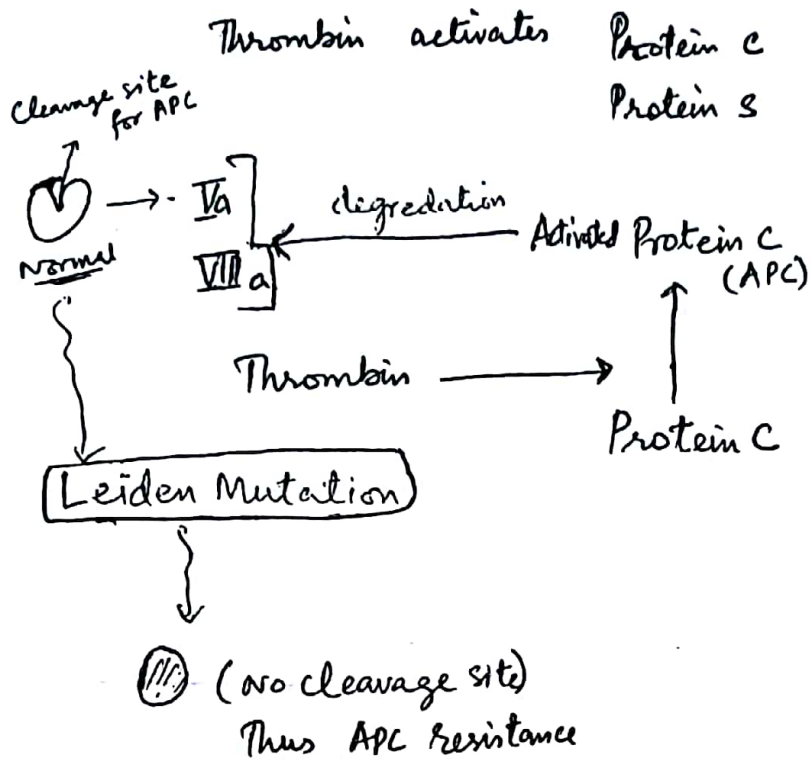 Thrombin activates Protein C
Protein S
Cleavage site
for APC
Normal
Va
VIII a
degredation
Activated Protein C
(APC)
Thrombin
Protein C
Leiden Mutation
(No cleavage site)
Thus APC resistance